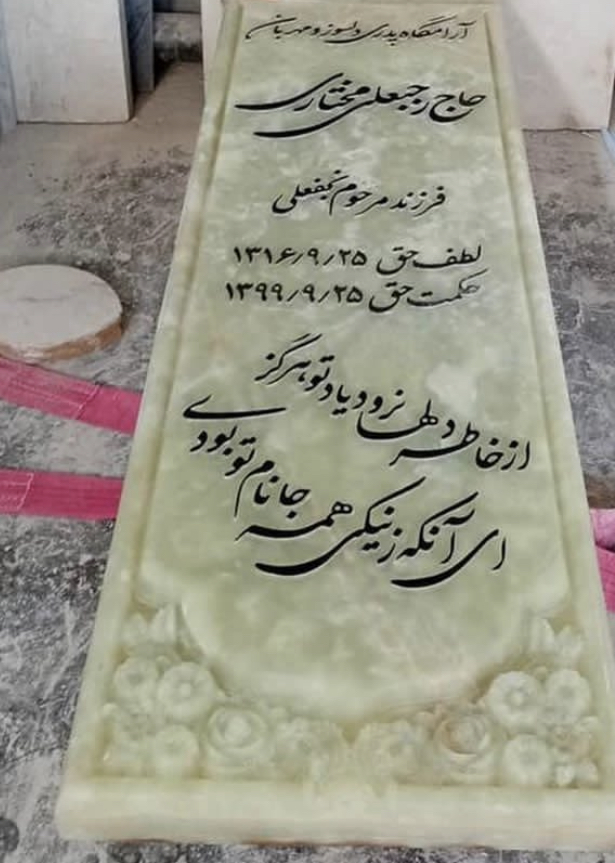 آرامگاه پدری دلسوز و مهربان
حاج رجبعلی مختاری
فرزند مرحوم نجفعلی
لطف حق ۱۳۱۶/۹/۲۵
حکمت حق ۱۳۹۹/۹/۲۵
از خاطر دلها نرود یاد تو هرگز
ای آنکه ز نیکی همه جا نام تو بودی